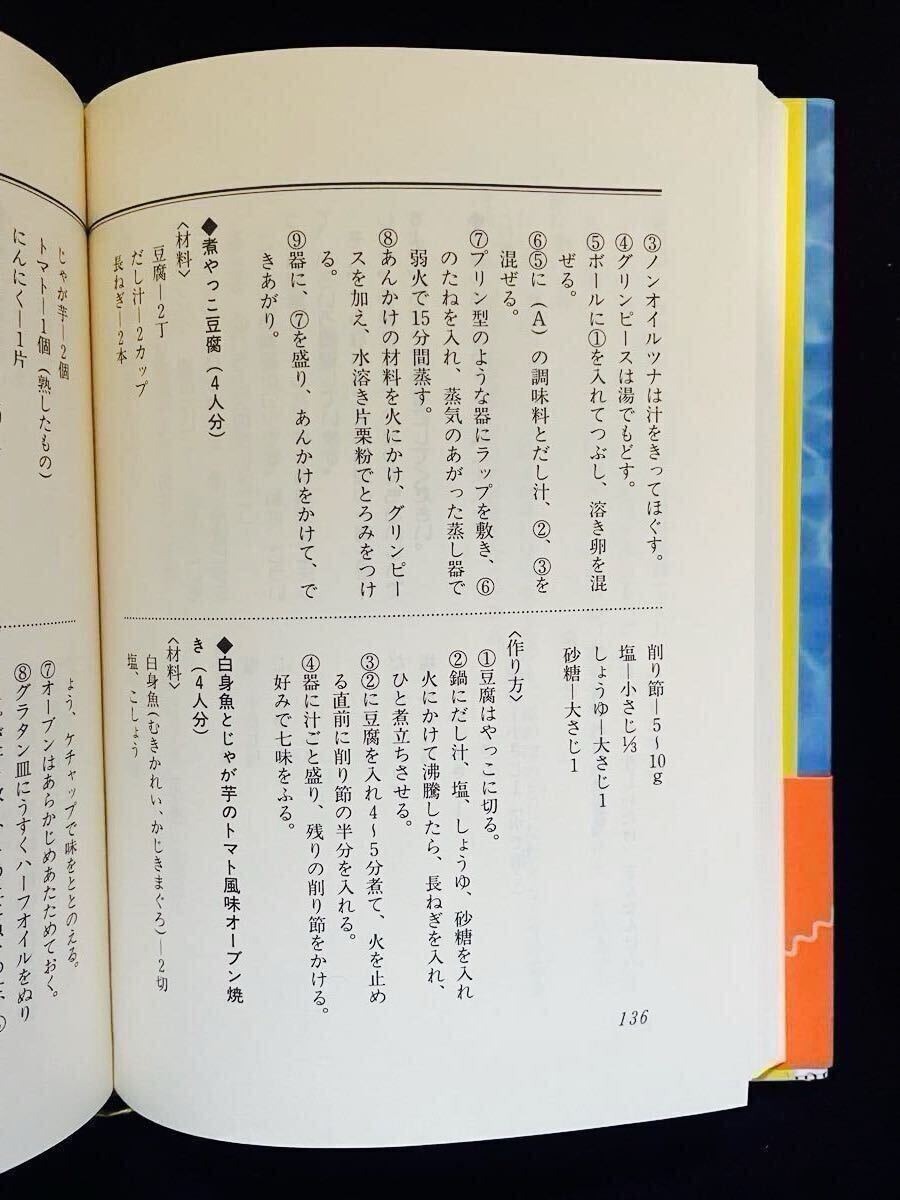 ③ノンオイルツナは汁をきってほぐす。
④グリンピースは湯でもどす。
⑤ボールに①を入れてつぶし、溶き卵を混
ぜる。
⑥⑤に（A）の調味料とだし汁、②、③を
混ぜる。
⑦プリン型のような器にラップを敷き、⑥
のたねを入れ、蒸気のあがった蒸し器で
弱火で15分間蒸す。
⑧あんかけの材料を火にかけ、グリンピー
スを加え、水溶き片栗粉でとろみをつけ
る。
⑨器に、⑦を盛り、あんかけをかけて、で
きあがり。
◆煮やっこ豆腐（4人分）
〈材料〉
豆腐―2丁
だし汁―2カップ
長ねぎ―2本
削り節―5～10g
塩―小さじ1/3
しょうゆ―大さじ1
砂糖―大さじ1
〈作り方〉
①豆腐はやっこに切る。
②鍋にだし汁、塩、しょうゆ、砂糖を入れ
火にかけて沸騰したら、長ねぎを入れ、
ひと煮立ちさせる。
③②に豆腐を入れ4～5分煮て、火を止め
る直前に削り節の半分を入れる。
④器に汁ごと盛り、残りの削り節をかける。
好みで七味をふる。
◆白身魚とじゃが芋のトマト風味オーブン焼
き（4人分）
〈材料〉
白身魚（むきかれい、かじきまぐろ）―2切
塩、こしょう
136
じゃが芋―2個
トマト―1個（熟したもの）
にんにく―1片
よう、ケチャップで味をととのえる。
⑦オーブンはあらかじめあたためておく。
⑧グラタン皿にうすくハーフオイルをぬり